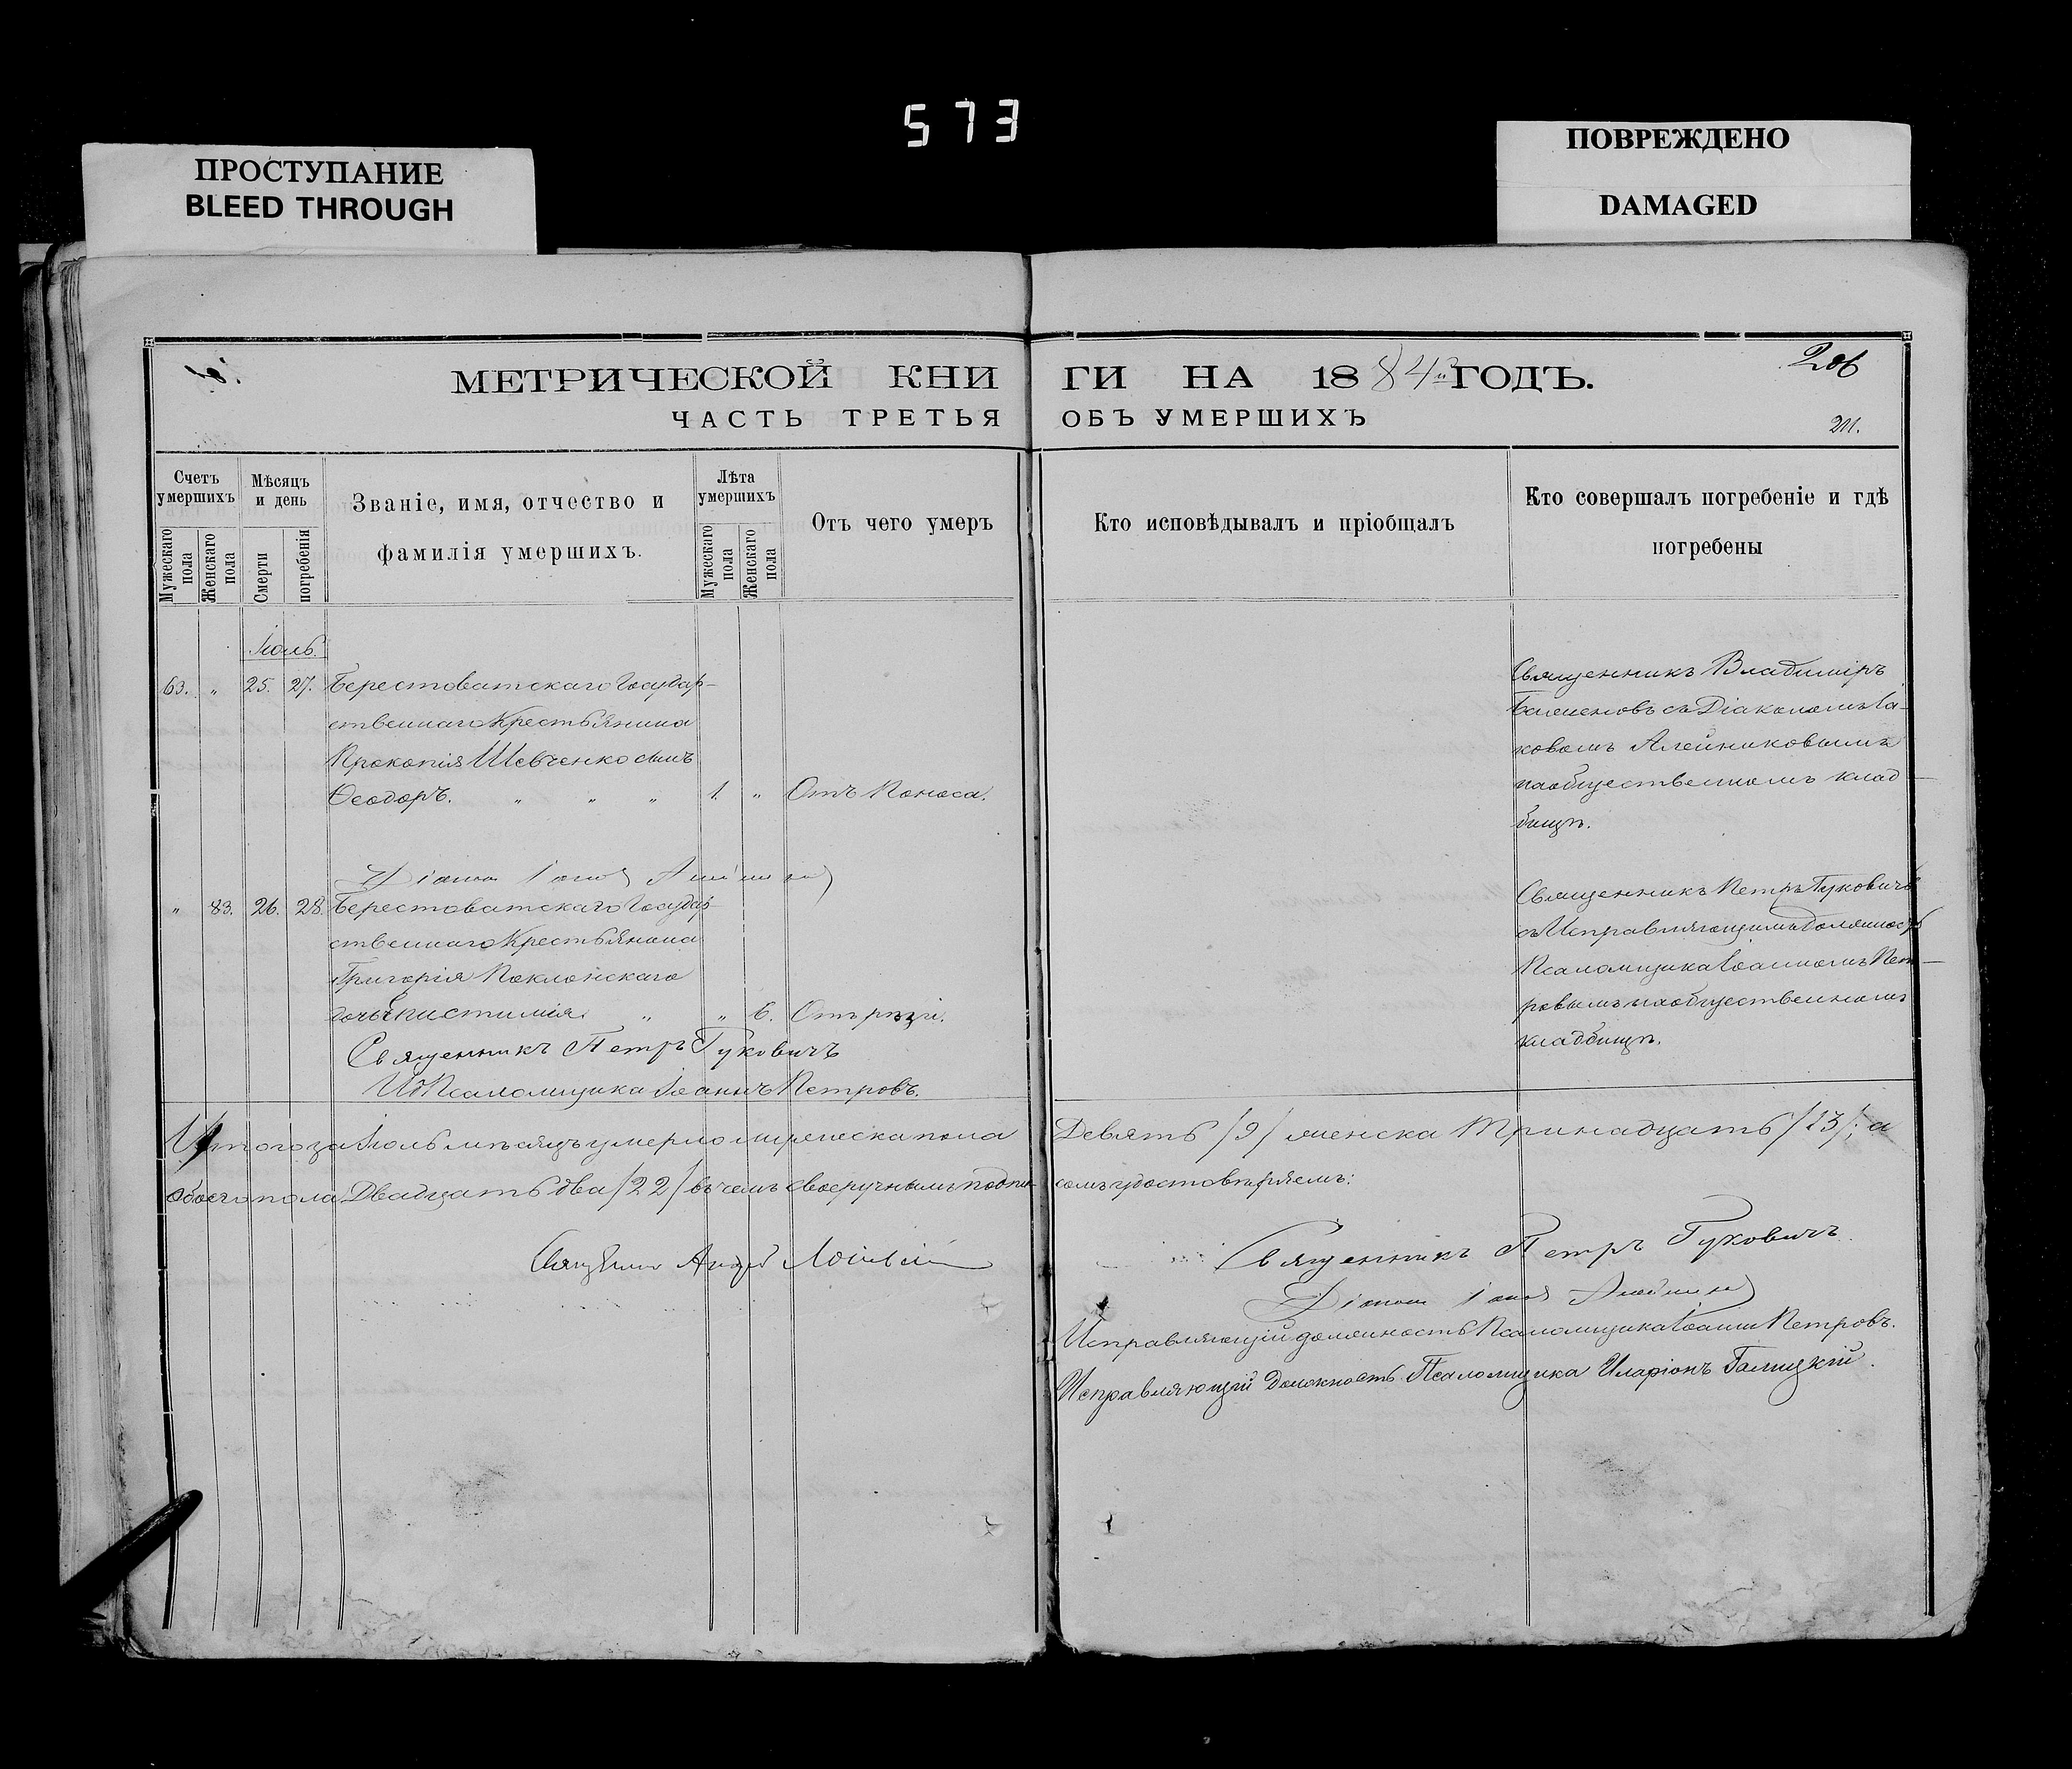 573
ПРОСТУПАНИЕ
BLEED THROUGH
ПОВРЕЖДЕНО
DAMAGED
МЕТРИЧЕСКОЙ КНИГИ НА 1884й ГОДЪ.
206
ЧАСТЬ ТРЕТЬЯ ОБЪ УМЕРШИХЪ
211.
Счетъ умершихъ
Мужескаго пола
Женскаго пола
Мѣсяцъ и день
Смерти
погребенія
Званіе, имя, отчество и
фамилія умершихъ.
Лѣта умершихъ
Мужескаго пола
Женскаго пола
Отъ чего умеръ
Кто исповѣдывалъ и пріобщалъ
Кто совершалъ погребеніе и гдѣ
погребены
Іюль.
63. " 25. 27. Берестоватскаго Государ-
ственнаго Крестьянина
Прокопія Шевченко сынъ
Ѳеодоръ. " " " 1. " Отъ Поноса.
Священникъ Владиміръ
съ Діакономъ Іа-
ковомъ Алейниковымъ
на общественномъ клад
бищѣ.
Діаконъ Іаковъ
" 83. 26. 28. Берестоватскаго Государ-
ственнаго Крестьянина
Григорія Поклонскаго
дочь Епистимія " " 6. Отъ рѣзи.
Священникъ Петръ Гуковичъ
съ Исправляющимъ должность
Псаломщика Іоанномъ Пет-
ровымъ на общественномъ
кладбищѣ.
Священникъ Петръ Гуковичъ
ИД Псаломщика Іоаннъ Петровъ.
Итого за Іюль мѣсяцъ умерло мужеска пола Девять /9/ женска Тринадцать /13/; а
обоего пола Двадцать два /22/ въ чемъ своеручнымъ подпи сомъ удостовѣряемъ:
Священникъ Петръ Гуковичъ.
Священникъ Андрей
Діаконъ Іаковъ
Исправляющій должность Псаломщика Іоаннъ Петровъ.
Исправляющій Должность Псаломщика Иларіонъ Галицкій.